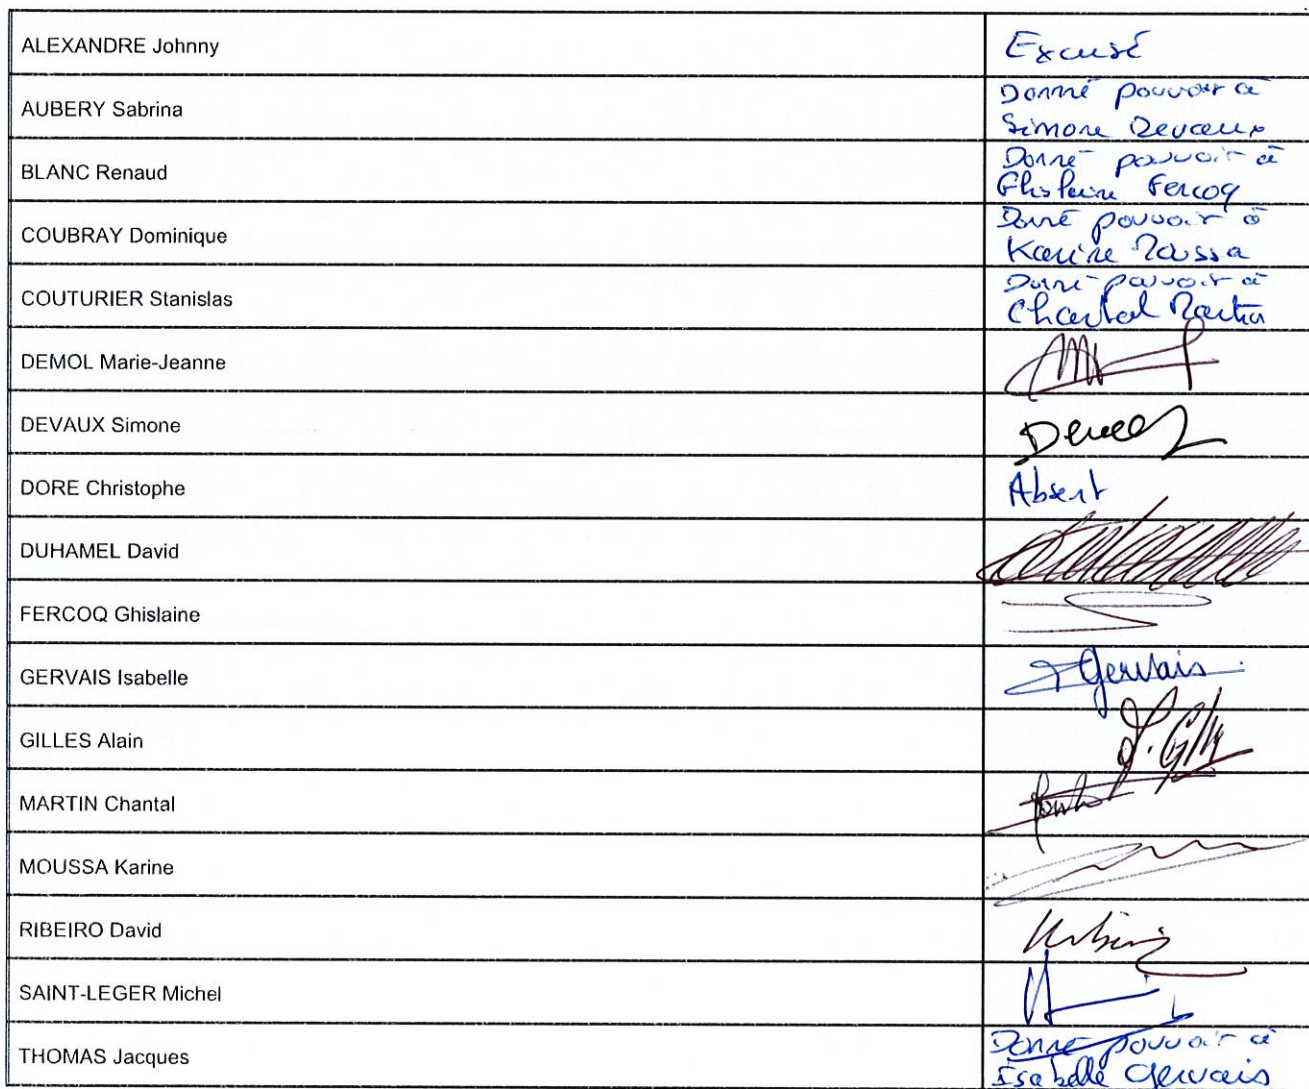 ALEXANDRE Johnny
Excusé
AUBERY Sabrina
Donné pouvoir à
Simone Devaux
BLANC Renaud
Donné pouvoir à
Ghislaine Fercoq
COUBRAY Dominique
Donné pouvoir à
Karine Moussa
COUTURIER Stanislas
Donné pouvoir à
Chantal Martin
DEMOL Marie-Jeanne
DEVAUX Simone
DORE Christophe
Absent
DUHAMEL David
FERCOQ Ghislaine
GERVAIS Isabelle
Gervais
GILLES Alain
MARTIN Chantal
MOUSSA Karine
RIBEIRO David
SAINT-LEGER Michel
THOMAS Jacques
Donné pouvoir à
Isabelle Gervais